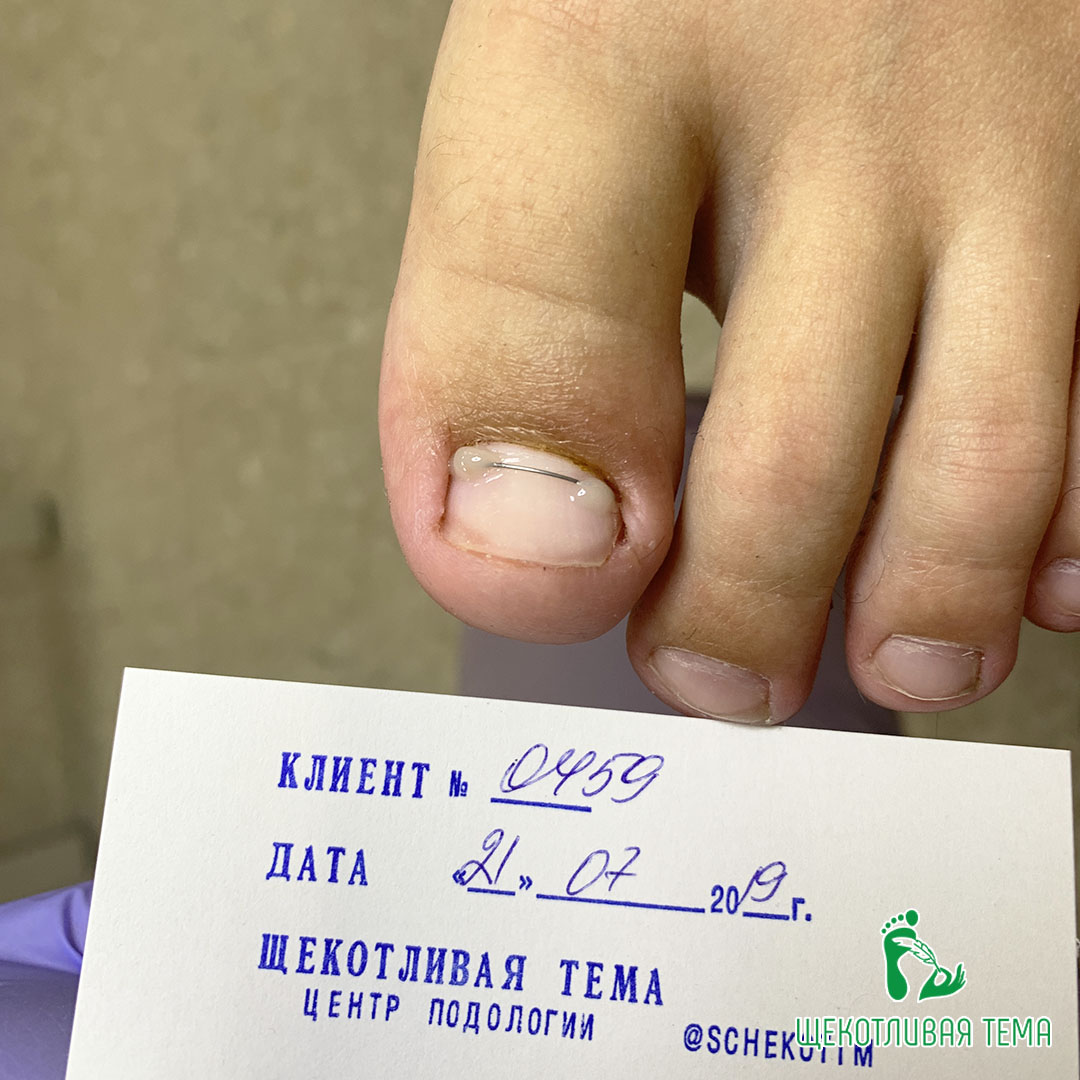 КЛИЕНТ № 0459
ДАТА «21» 07 2019 г.
ЩЕКОТЛИВАЯ ТЕМА
ЦЕНТР ПОДОЛОГИИ
ЩЕКОТЛИВАЯ ТЕМА